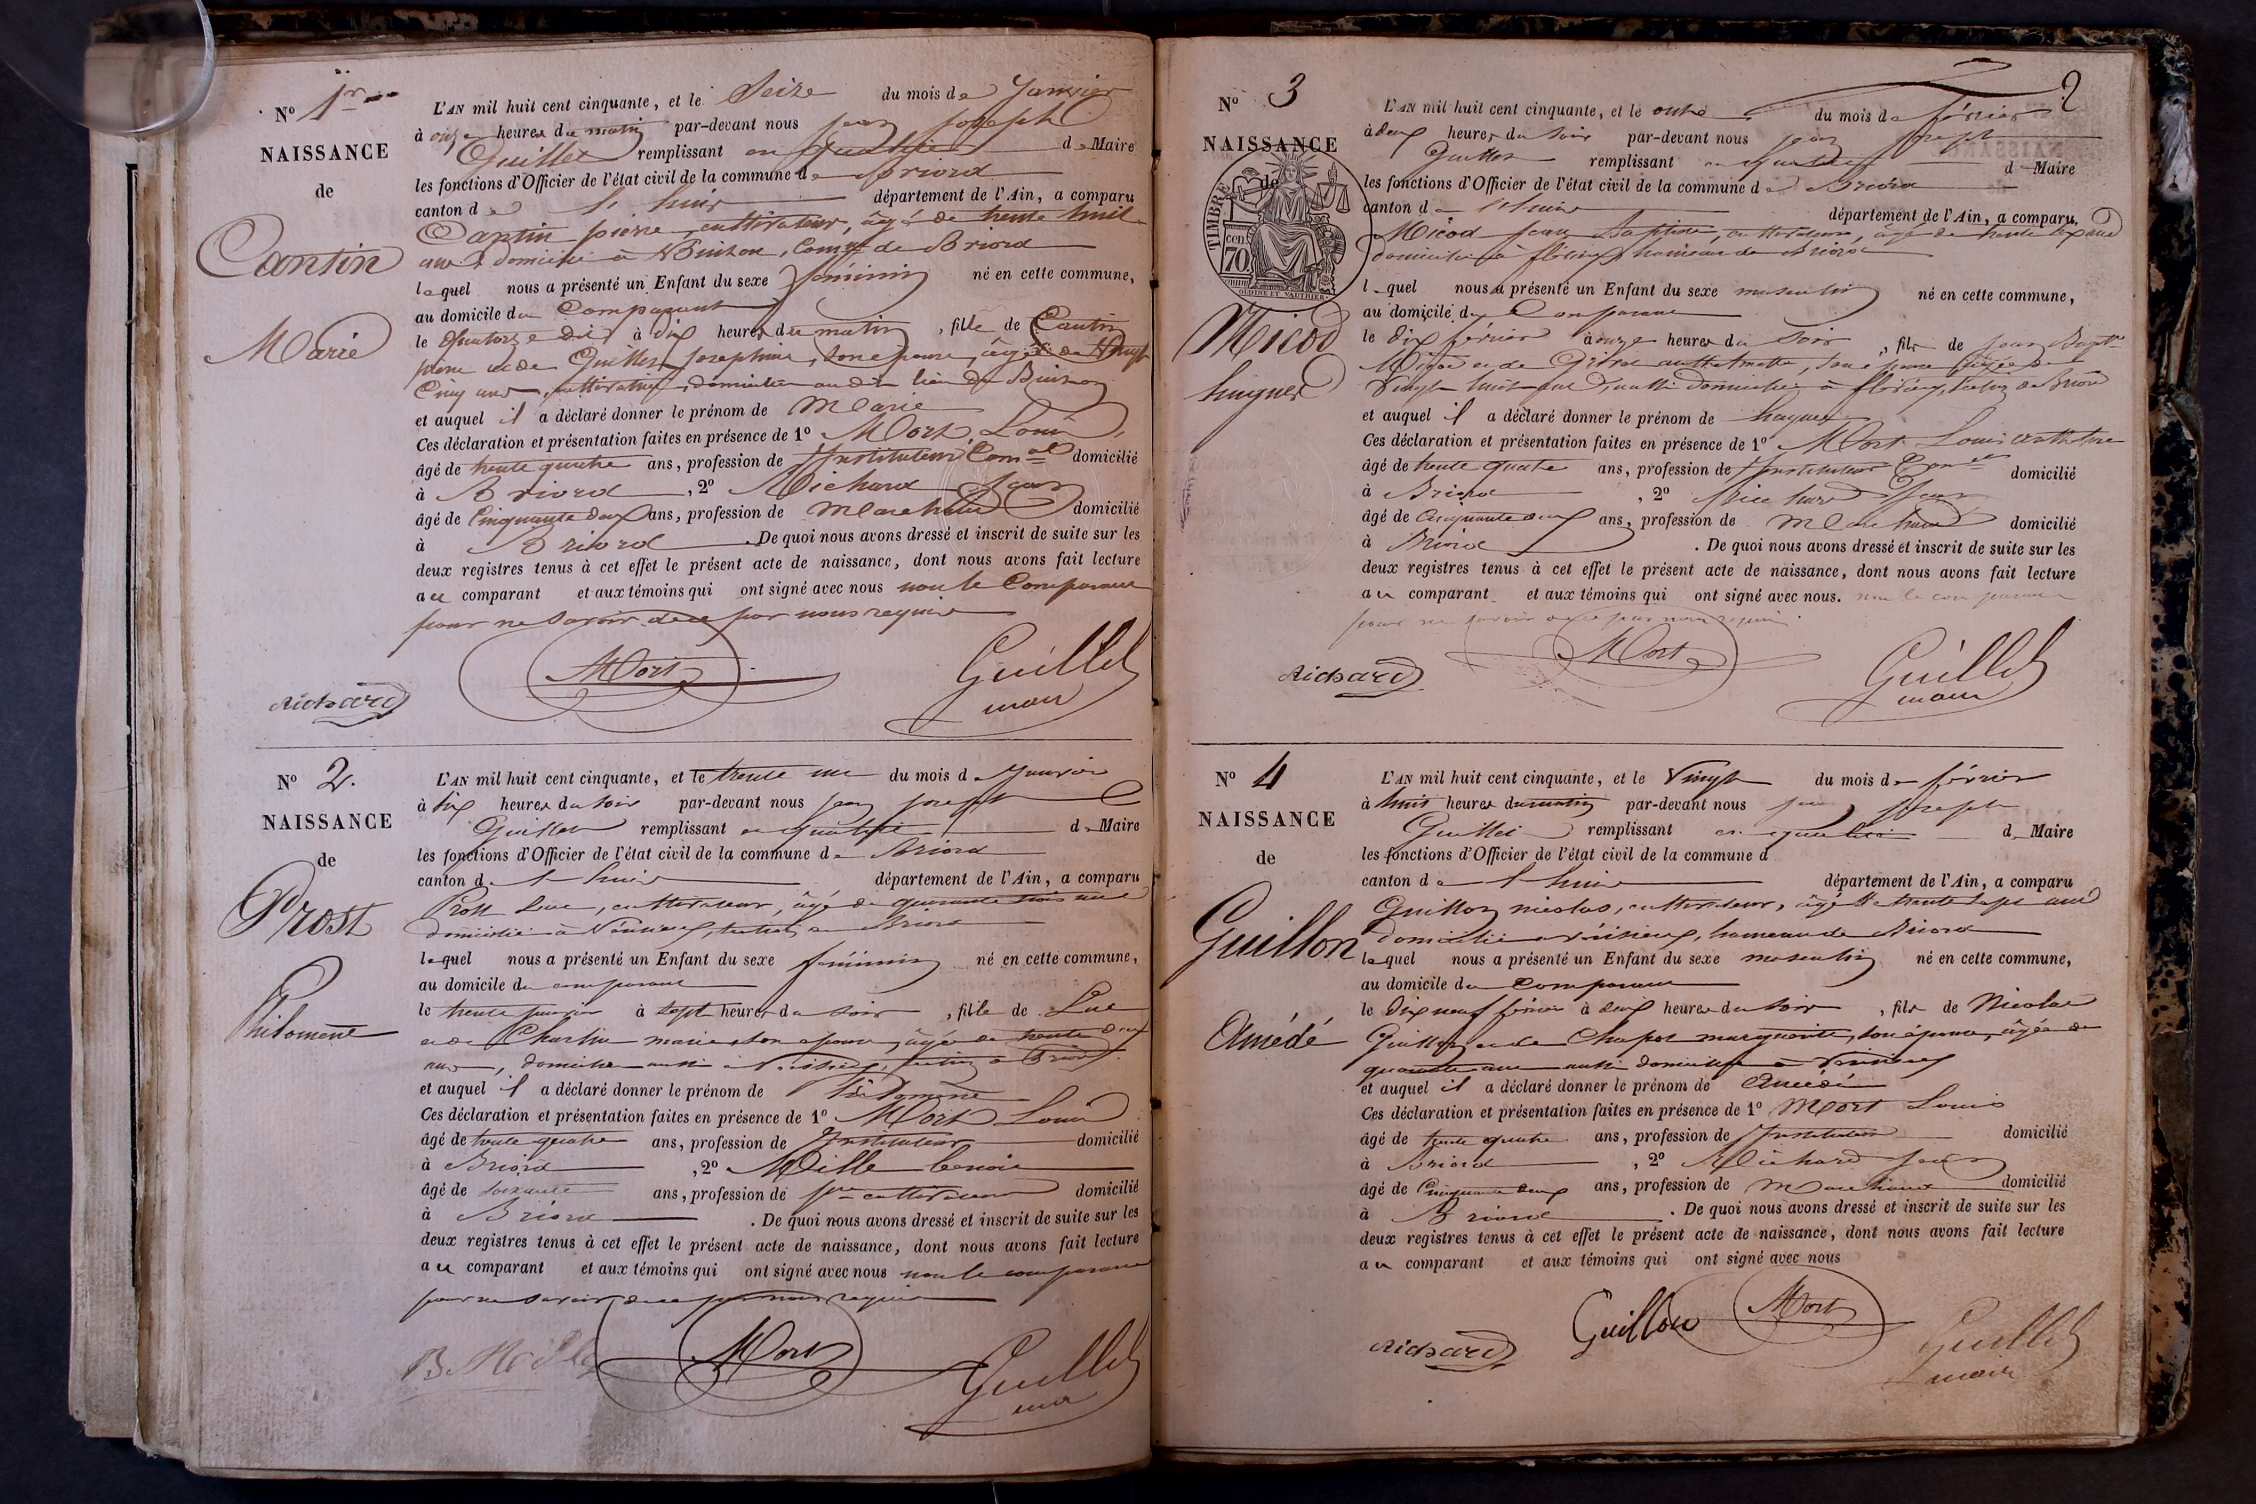 N° 1er
NAISSANCE
de
Cantin
Marie
L'AN mil huit cent cinquante, et le Seize du mois de Janvier
à onze heures du matin par-devant nous jean joseph
Guillet remplissant en qualité de Maire
les fonctions d'Officier de l'état civil de la commune de Briord
canton de département de l'Ain, a comparu
Cantin pierre, cultivateur, âgé de trente huit
ans domicilié à Buisson, de Briord
lequel nous a présenté un Enfant du sexe féminin né en cette commune,
au domicile du Comparant
le quatorze dit à dix heures du matin, fille de Cantin
pierre et de Guillet josephine, son épouse, âgée de Vingt
Cinq ans, domiciliée au dit lieu du Buisson
et auquel il a déclaré donner le prénom de Marie
Ces déclaration et présentation faites en présence de 1° Mort Louis,
âgé de trente quatre ans, profession de Instituteur Comal domicilié
à Briord, 2° Richard Jean
âgé de Cinquante deux ans, profession de Marchand domicilié
à Briord. De quoi nous avons dressé et inscrit de suite sur les
deux registres tenus à cet effet le présent acte de naissance, dont nous avons fait lecture
au comparant et aux témoins qui ont signé avec nous non le Comparant
pour ne savoir de ce par nous requis
Richard
Mort
Guillet
maire
N° 2.
NAISSANCE
de
Prost
Philomène
L'AN mil huit cent cinquante, et le trente un du mois de Janvier
à six heures du soir par-devant nous jean joseph
Guillet remplissant en qualité de Maire
les fonctions d'Officier de l'état civil de la commune de Briord
canton de département de l'Ain, a comparu
Prost Luc, cultivateur, âgé de quarante trois ans
domicilié à Briord
lequel nous a présenté un Enfant du sexe féminin né en cette commune,
au domicile du comparant
le trente janvier à sept heures du soir, fille de Luc
et de Charlin marie son épouse, âgée de trente deux
ans, domiciliée aussi à
et auquel il a déclaré donner le prénom de Philomène
Ces déclaration et présentation faites en présence de 1° Mort Louis
âgé de trente quatre ans, profession de Instituteur domicilié
à Briord, 2° Mille benoit
âgé de soixante ans, profession de cultivateur domicilié
à Briord. De quoi nous avons dressé et inscrit de suite sur les
deux registres tenus à cet effet le présent acte de naissance, dont nous avons fait lecture
au comparant et aux témoins qui ont signé avec nous non le comparant
pour ne savoir de ce par nous requis
Mort
Guillet
N° 3
2
NAISSANCE
de
TIMBRE
cen 70
Micod
L'AN mil huit cent cinquante, et le onze du mois de février
à deux heures du soir par-devant nous jean joseph
Guillet remplissant en qualité de Maire
les fonctions d'Officier de l'état civil de la commune de Briord
canton de département de l'Ain, a comparu
Micod jean Baptiste, cultivateur, âgé de trente six ans
domicilié à hameau de Briord
lequel nous a présenté un Enfant du sexe masculin né en cette commune,
au domicile du Comparant
le dix février à onze heures du soir, fils de jean Bapte
Micod et de son épouse âgée de
Vingt huit ans, aussi domiciliée à
et auquel il a déclaré donner le prénom de
Ces déclaration et présentation faites en présence de 1° Mort Louis
âgé de trente quatre ans, profession de Instituteur domicilié
à Briord, 2° Richard Jean
âgé de Cinquante deux ans, profession de Marchand domicilié
à Briord. De quoi nous avons dressé et inscrit de suite sur les
deux registres tenus à cet effet le présent acte de naissance, dont nous avons fait lecture
au comparant et aux témoins qui ont signé avec nous. non le comparant
pour ne savoir de ce par nous requis.
Richard
Mort
Guillet
maire
N° 4
NAISSANCE
de
Guillon
Amédé
L'AN mil huit cent cinquante, et le Vingt du mois de février
à huit heures du matin par-devant nous jean joseph
Guillet remplissant en qualité de Maire
les fonctions d'Officier de l'état civil de la commune d
canton de département de l'Ain, a comparu
Guillon nicolas, cultivateur, âgé de trente sept ans
domicilié à hameau de Briord
lequel nous a présenté un Enfant du sexe masculin né en cette commune,
au domicile du Comparant
le Dix neuf février à deux heures du soir, fils de Nicolas
Guillon et de Chapot marguerite, son épouse, âgée de
quarante ans aussi domiciliée à
et auquel il a déclaré donner le prénom de Amédé
Ces déclaration et présentation faites en présence de 1° Mort Louis
âgé de trente quatre ans, profession de Instituteur domicilié
à Briord, 2° Richard Jean
âgé de Cinquante deux ans, profession de Marchand domicilié
à Briord. De quoi nous avons dressé et inscrit de suite sur les
deux registres tenus à cet effet le présent acte de naissance, dont nous avons fait lecture
au comparant et aux témoins qui ont signé avec nous
Richard
Guillon
Mort
Guillet
maire